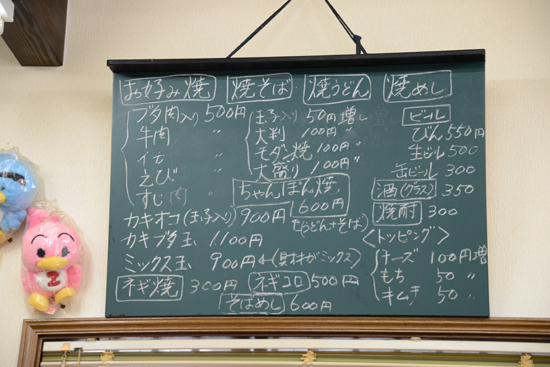 お好み焼 焼そば 焼うどん 焼めし
ブタ肉入り 500円
牛肉 〃
イカ 〃
えび 〃
すじ肉 〃
カキオコ(玉子入り) 900円
カキブタ玉 1100円
ミックス玉 900円←(具材がミックス)
ネギ焼 300円
ネギコロ 500円
そばめし 600円
玉子入り 50円増し
大判 100円〃
モダン焼 100円〃
大盛り 100円〃
ちゃんぽん焼
600円
(うどん+そば)
ビール
びん 550円
生ビル 500
缶ビール 300
酒(グラス) 350
焼酎 300
<トッピング>
チーズ 100円増
もち 50 〃
キムチ 50 〃
2